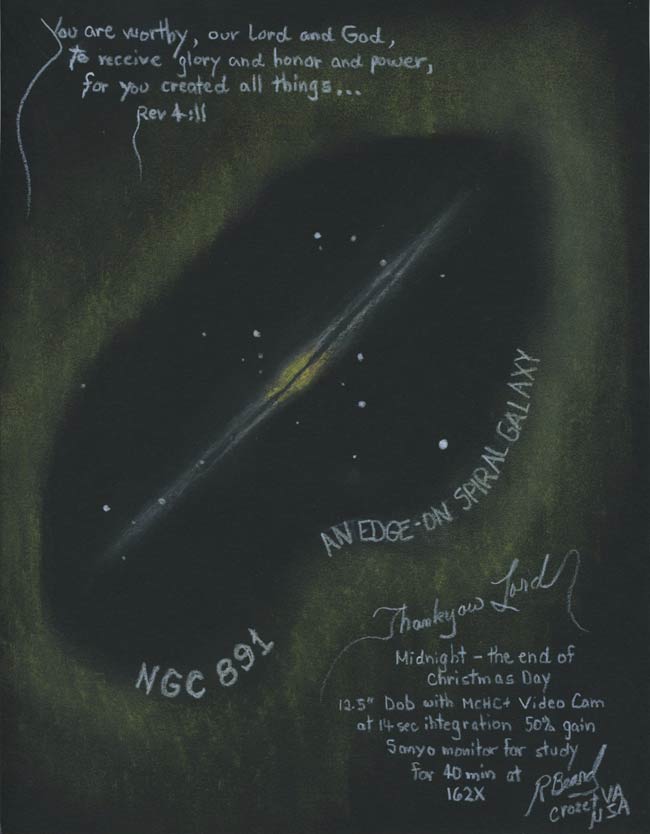 You are worthy, our Lord and God,
to receive glory and honor and power,
for you created all things...
Rev 4:11
AN EDGE-ON SPIRAL GALAXY
NGC 891
Thankyou Lord
Midnight - the end of
Christmas Day
12.5" Dob with MCHC+ Video Cam
at 14 sec integration 50% gain
Sanyo monitor for study
for 40 min at
162X
R Beard
Crozet VA
USA